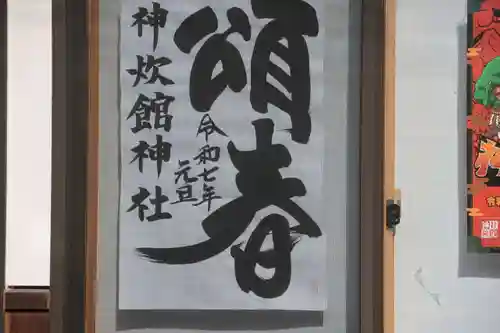 頌春
令和七年
元旦
神炊館神社